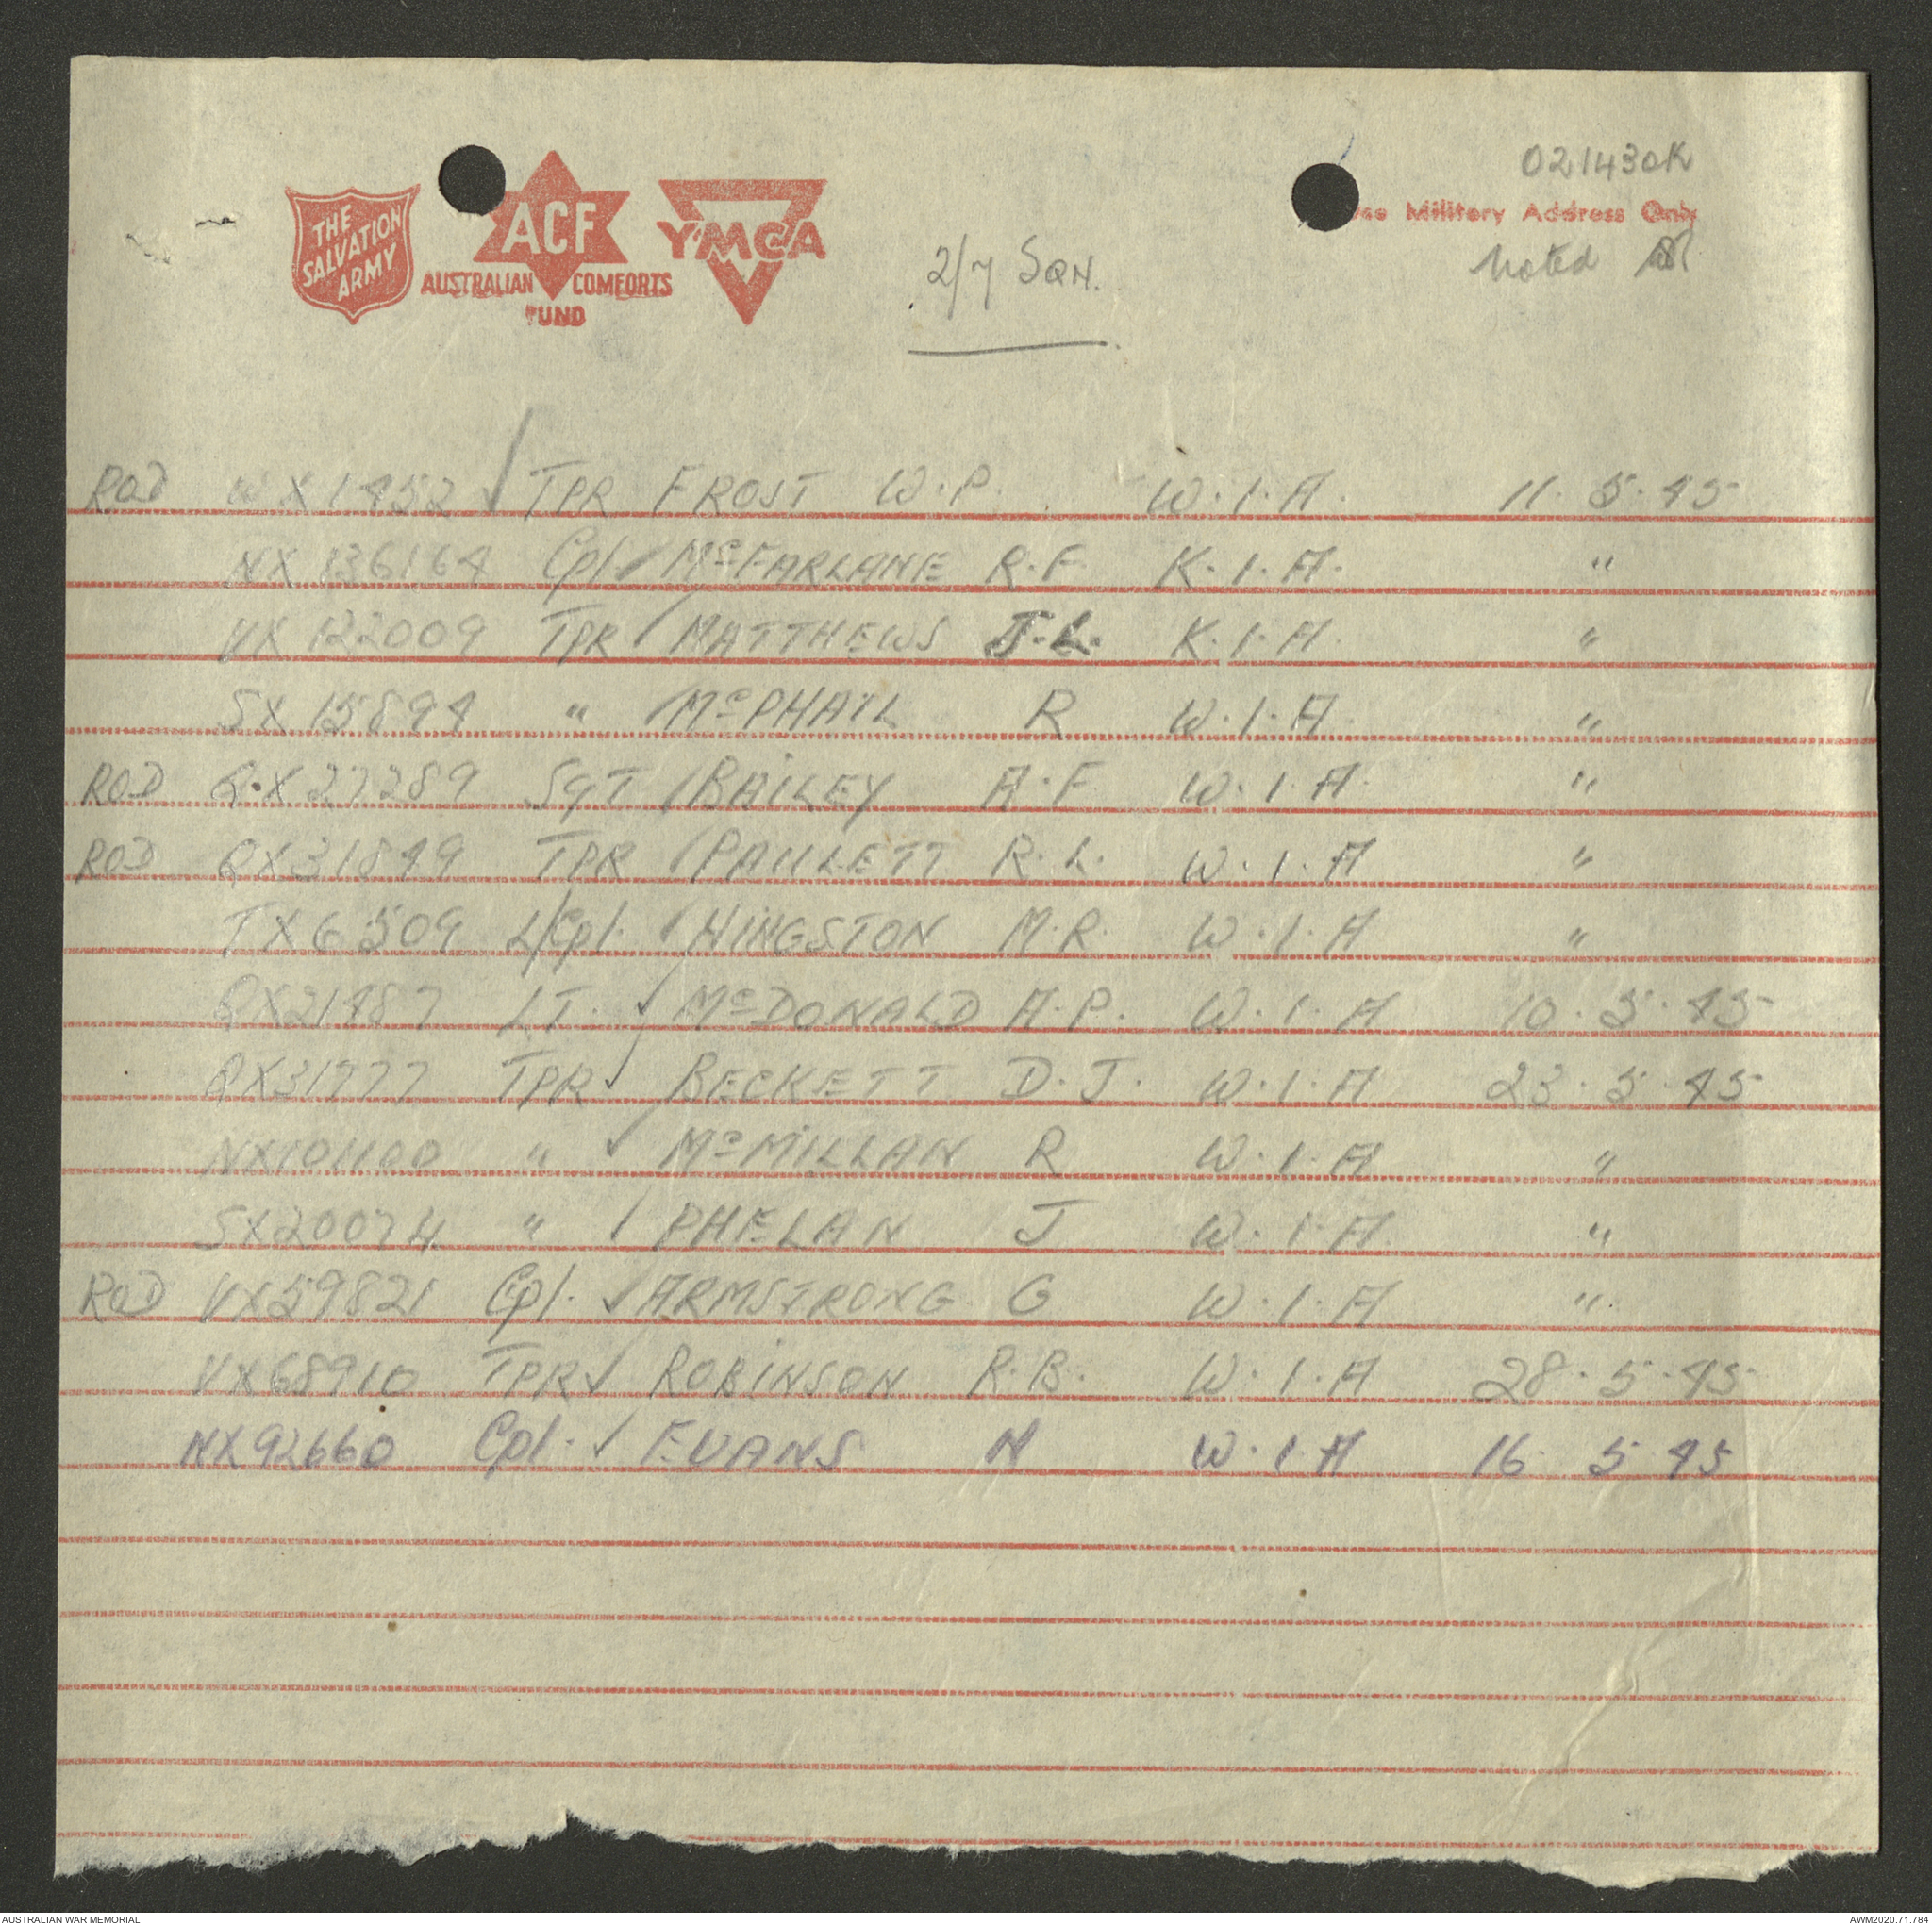 021430K
THE
SALVATION
ARMY
ACF
AUSTRALIAN COMFORTS
FUND
YMCA
Use Military Address Only
2/7 SQN.
Noted
ROD WX1452 TPR FROST W.P. W.I.A. 11.5.45
NX136164 Cpl. McFARLANE R.F. K.I.A. "
VX122009 TPR MATTHEWS J.L. K.I.A. "
SX15894 " McPHAIL R W.I.A. "
ROD QX27289 SGT BAILEY A.F W.I.A. "
ROD QX31849 TPR PAULETT R.L. W.I.A "
TX6509 L/Cpl. HINGSTON M.R. W.I.A "
QX21487 LT. McDONALD A.P. W.I.A 10.5.45
QX31777 TPR BECKETT D.J. W.I.A 23.5.45
NX101100 " McMILLAN R W.I.A "
SX20074 " PHELAN J W.I.A. "
ROD VX59821 Cpl. ARMSTRONG G W.I.A ".
VX68910 TPR ROBINSON R.B. W.I.A 28.5.45
NX92660 Cpl. EVANS N W.I.A 16 5 45
AUSTRALIAN WAR MEMORIAL AWM2020.71.784